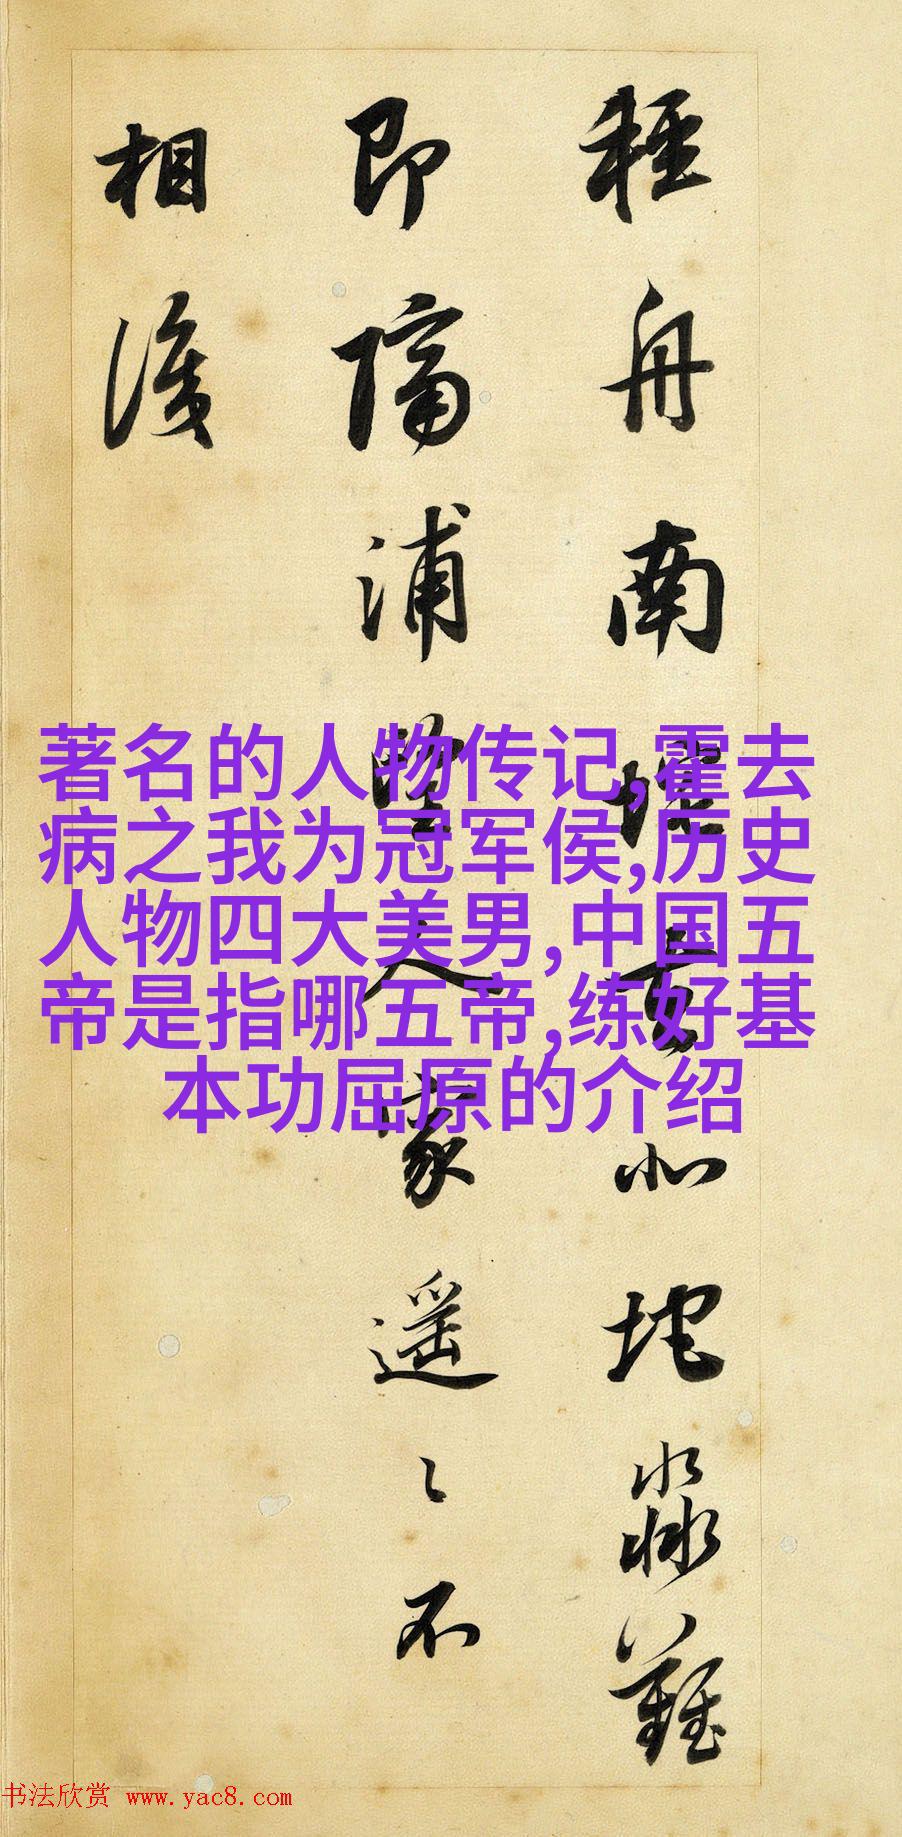 輕舟南垞去北垞淼難
即隔浦望人家遥〻不
相識
著名的人物传记,霍去
病之我为冠军侯,历史
人物四大美男,中国五
帝是指哪五帝,练好基
本功屈原的介绍
书法欣赏 www.yac8.com